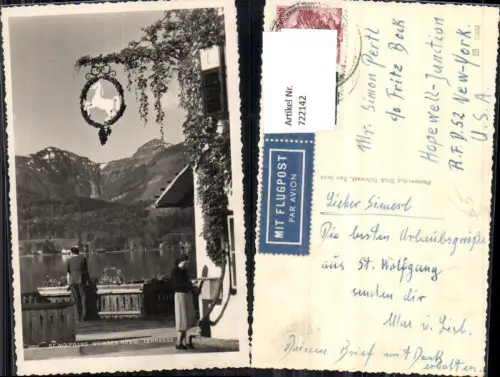 ST. WOLFGANG WEISSES RÖSSL, TERRASSE
Artikel Nr.
722142
MIT FLUGPOST
PAR AVION
Mr. Simon Pertl
c/o Fritz Beck
Hopewell-Junction
R.F.D. 52 New-York.
U.S.A.
Lieber Simerl
Die besten Urlaubsgrüße
aus St. Wolfgang
senden dir
u. Lisl.
Deinen Brief mit Dank
erhalten.